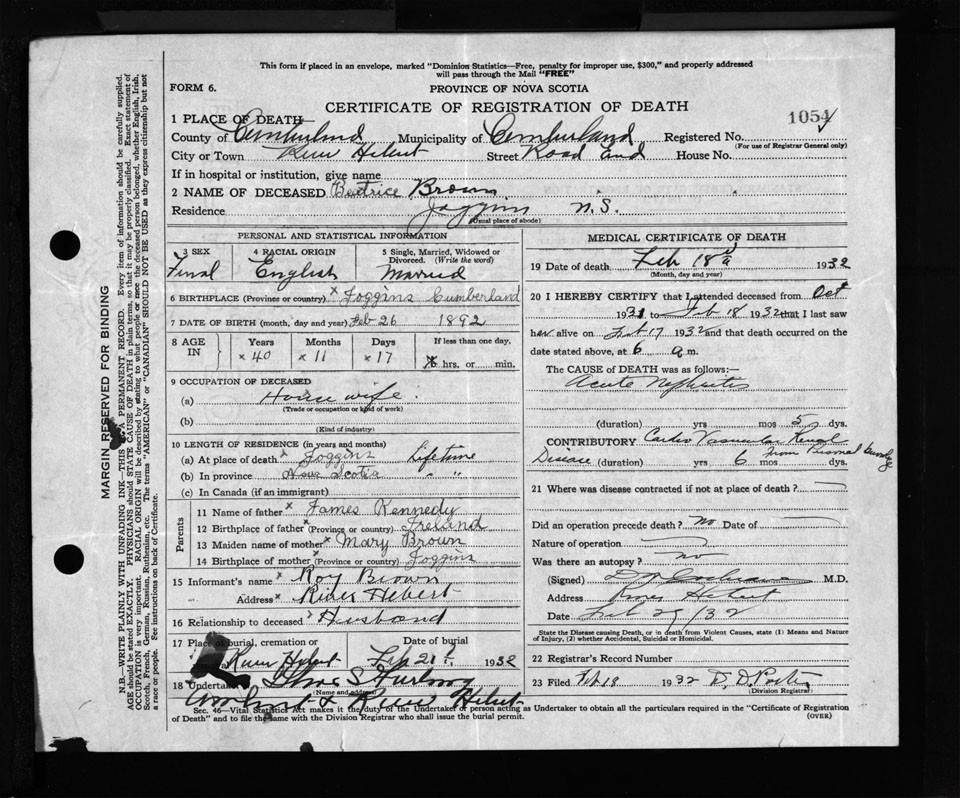 This form if placed in an envelope, marked "Dominion Statistics—Free, penalty for improper use, $300," and properly addressed
will pass through the Mail "FREE"
FORM 6.
PROVINCE OF NOVA SCOTIA
CERTIFICATE OF REGISTRATION OF DEATH
1054
1 PLACE OF DEATH—
County of Cumberland Municipality of Cumberland Registered No.
(For use of Registrar General only)
City or Town River Hebert Street Road End House No.
If in hospital or institution, give name
2 NAME OF DECEASED Beatrice Brown
Residence Joggins N.S.
(Usual place of abode)
PERSONAL AND STATISTICAL INFORMATION
3 SEX 4 RACIAL ORIGIN 5 Single, Married, Widowed or
Divorced. (Write the word)
English Married
6 BIRTHPLACE (Province or country) x Joggins Cumberland
7 DATE OF BIRTH (month, day and year) Feb 26 1892
8 AGE IN Years Months Days If less than one day,
x 40 x 11 x 17 hrs. or min.
9 OCCUPATION OF DECEASED
(a) House wife.
(Trade or occupation or kind of work)
(b)
(Kind of industry)
10 LENGTH OF RESIDENCE (in years and months)
(a) At place of death x Joggins Lifetime
(b) In province Nova Scotia " "
(c) In Canada (if an immigrant)
Parents
11 Name of father x James Kennedy
12 Birthplace of father x (Province or country) Ireland
13 Maiden name of mother x Mary Brown
14 Birthplace of mother x (Province or country) Joggins
15 Informant's name x Roy Brown
Address x River Hebert
16 Relationship to deceased Husband
17 Place of burial, cremation or Date of burial
River Hebert Feb 21 1932
18 Undertaker S Furlong
(Name and address)
Amherst & River Hebert
MEDICAL CERTIFICATE OF DEATH
19 Date of death Feb 18 1932
(Month, day and year)
20 I HEREBY CERTIFY that I attended deceased from Oct
1931 to Feb 18 1932 that I last saw
her alive on Feb 17 1932 and that death occurred on the
date stated above, at 6 a.m.
The CAUSE of DEATH was as follows:—
Acute Nephritis
(duration) yrs mos 5 dys.
CONTRIBUTORY Cardio Vascular Renal
from
Disease (duration) yrs 6 mos dys.
21 Where was disease contracted if not at place of death?
Did an operation precede death? No Date of
Nature of operation
Was there an autopsy? no
(Signed) M.D.
Address River Hebert
Date Feb 29/32
State the Disease causing Death, or in death from Violent Causes, state (1) Means and Nature
of Injury, (2) whether Accidental, Suicidal or Homicidal.
22 Registrar's Record Number
23 Filed Feb 18 1932 D. D.
(Division Registrar)
Sec. 46—Vital Statistics Act makes it the duty of the Undertaker or person acting as Undertaker to obtain all the particulars required in the "Certificate of Registration
of Death" and to file the same with the Division Registrar who shall issue the burial permit. (OVER)
MARGIN RESERVED FOR BINDING
N.B.—WRITE PLAINLY WITH UNFADING INK—THIS IS A PERMANENT RECORD. Every item of information should be carefully supplied.
AGE should be stated EXACTLY. PHYSICIANS should STATE CAUSE OF DEATH in plain terms, so that it may be properly classified. Exact statement of
OCCUPATION is very important. RACIAL ORIGIN will be described by stating to what people or race the deceased person belonged, whether English, Irish,
Scotch, French, German, Russian, Ruthenian, etc. The terms "AMERICAN" or "CANADIAN" SHOULD NOT BE USED as they express citizenship but not
a race or people. See instructions on back of Certificate.